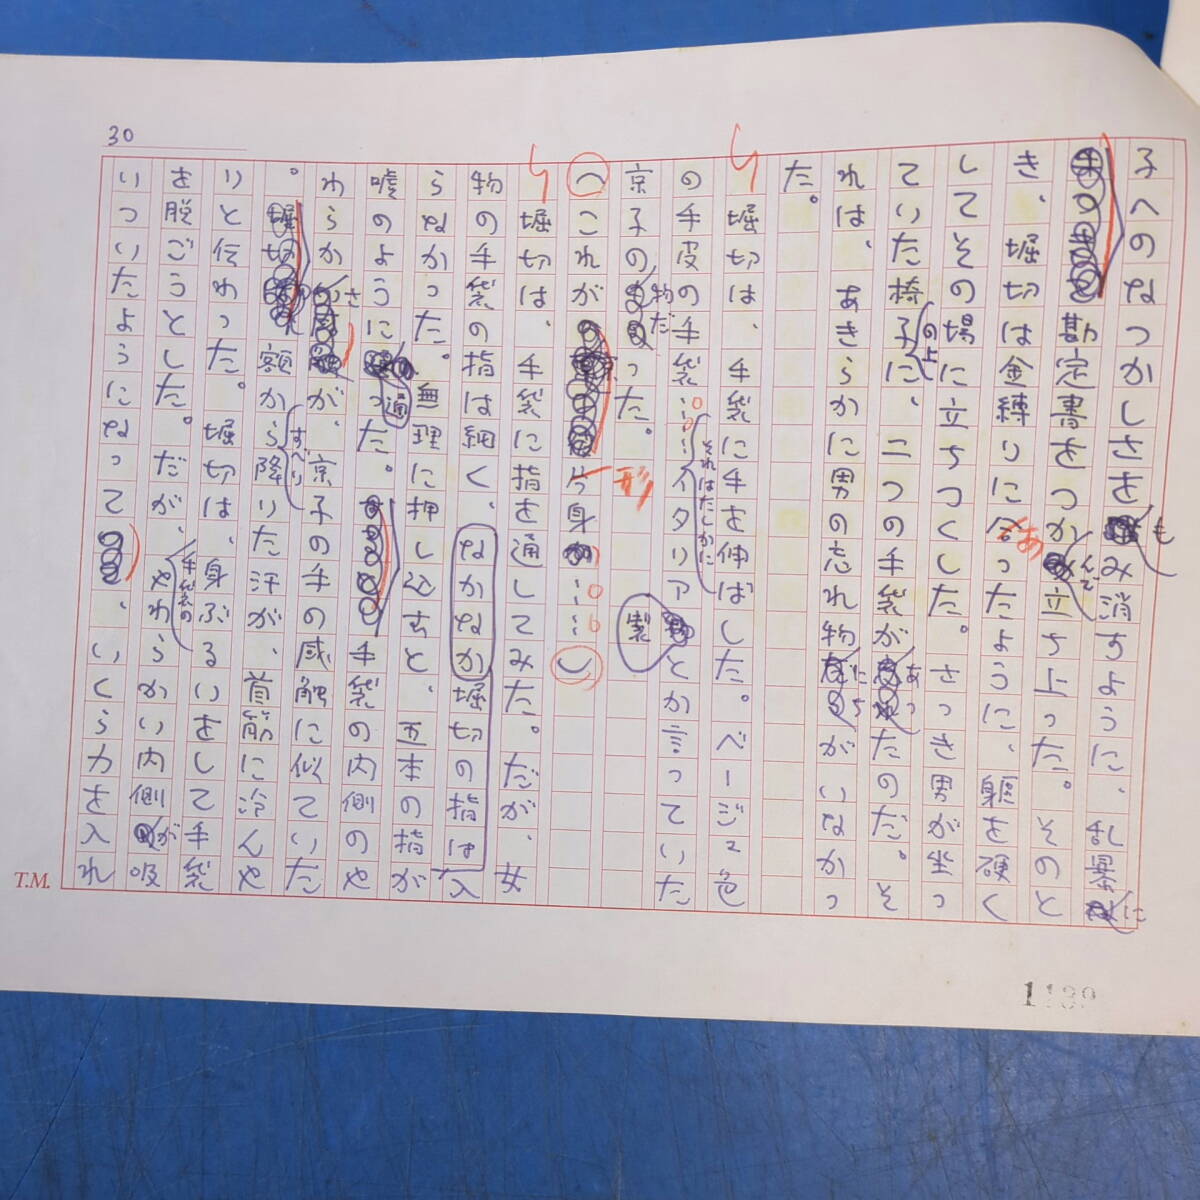 30
子へのなつかしさをもみ消すように、乱暴に
勘定書をつかんで立ち上った。そのと
き、堀切は金縛りに合ったように、躯を硬く
してその場に立ちつくした。さっき男が坐っ
ていた椅子の上に、二つの手袋があったのだ。そ
れは、あきらかに男の忘れ物にちがいなかっ
た。
堀切は、手袋に手を伸ばした。ベージュ色
の手皮の手袋……それはたしかにイタリア製とか言っていた
京子の物だった。
(これが形身……)
堀切は、手袋に指を通してみた。だが、女
物の手袋の指は細く、堀切の指はなかなか入
らなかった。無理に押し込むと、五本の指が
嘘のように通った。手袋の内側のや
わらかさが、京子の手の感触に似ていた
。額からすべり降りた汗が、首筋に冷んや
りと伝わった。堀切は、身ぶるいをして手袋
を脱ごうとした。だが、手袋のやわらかい内側が吸
いついたようになって、いくら力を入れ
T.M.